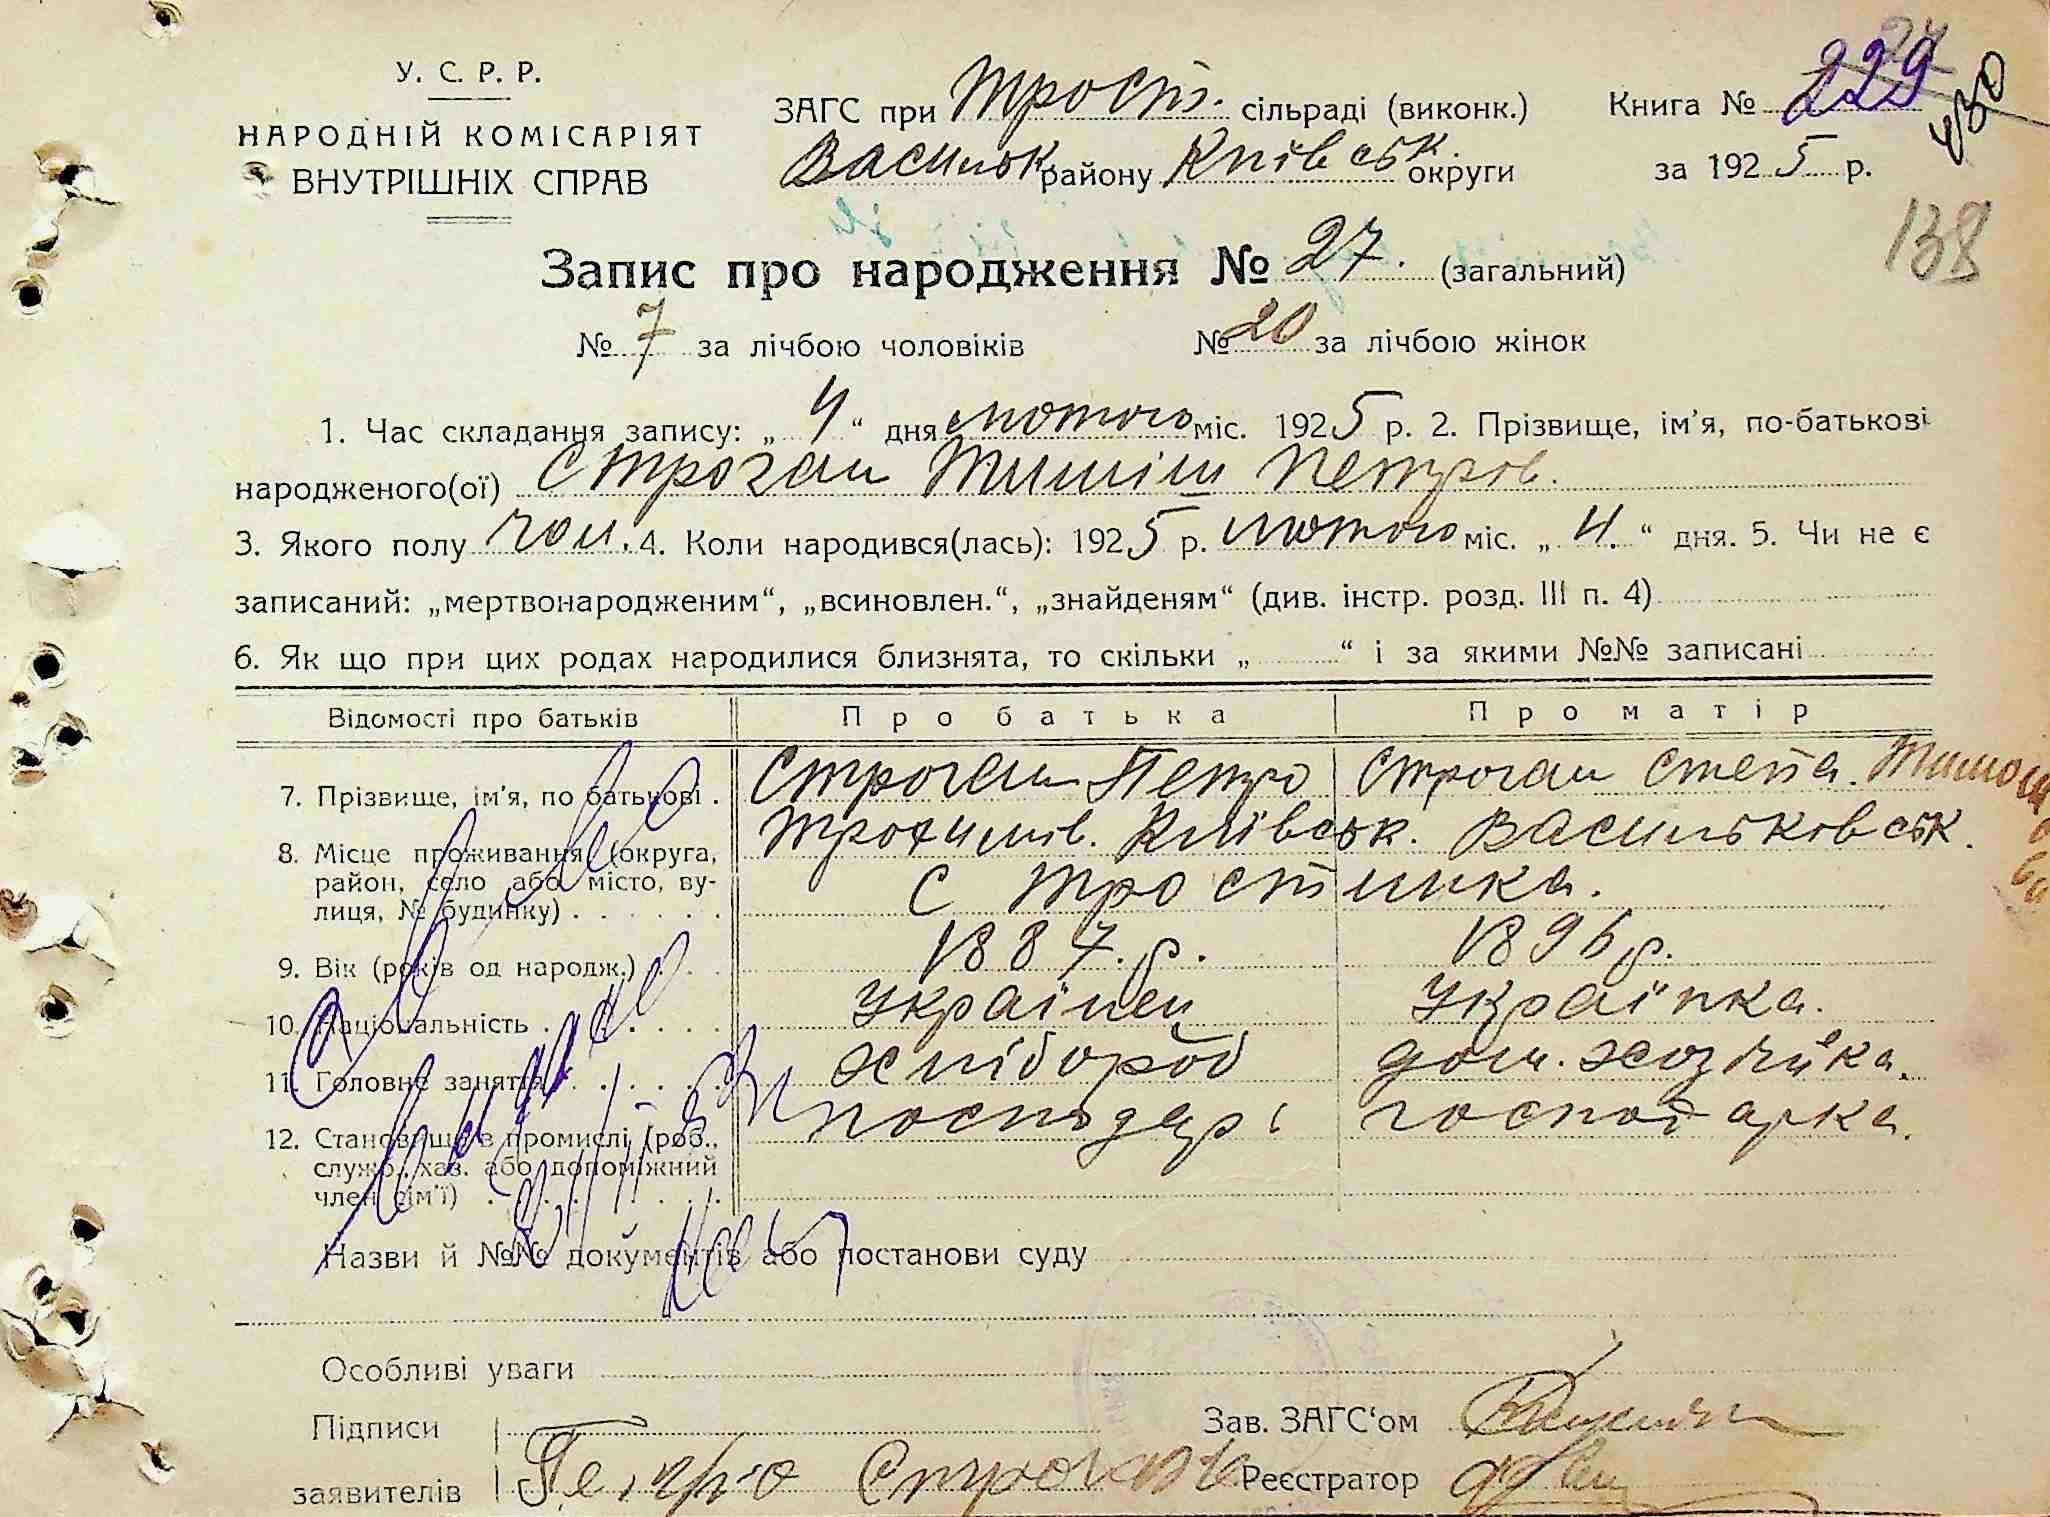 У. С. Р. Р.
НАРОДНІЙ КОМІСАРІЯТ
ВНУТРІШНІХ СПРАВ
ЗАГС при Трост. сільраді (виконк.)
Васильк району Київськ. округи
Книга № 229
430
за 1925 р.
138
Запис про народження № 27. (загальний)
№ 7 за лічбою чоловіків № 20 за лічбою жінок
1. Час складання запису: „ 4 “ дня лютого міс. 1925 р. 2. Прізвище, ім’я, по-батькові
народженого(ої) Строган Тиміш Петров.
3. Якого полу чол. 4. Коли народився(лась): 1925 р. лютого міс. „ 4. “ дня. 5. Чи не є
записаний: „мертвонародженим“, „всиновлен.“, „знайденям“ (див. інстр. розд. III п. 4)
6. Як що при цих родах народилися близнята, то скільки „ “ і за якими №№ записані
Відомості про батьків Про батька Про матір
7. Прізвище, ім’я, по батькові . Строган Петро Строган Степа. Тимош
Трохимів. Київськ. Васильковськ.
8. Місце проживання (округа,
район, село або місто, ву-
лиця, № будинку) . . . . . . С Тростинка.
9. Вік (років од народж.) . . . 1887. р. 1896 р.
10. Національність . . . . . Українец Українка.
11. Головне заняття . . . . . хлібороб дом. хозяйка.
12. Становище в промислі (роб.,
служб., хаз. або допоміжний
член сім’ї) . . . . . господарь господарка.
Назви й №№ документів або постанови суду
Особливі уваги
Підписи
заявителів Петро Строган
Зав. ЗАГС‘ом
Реєстратор